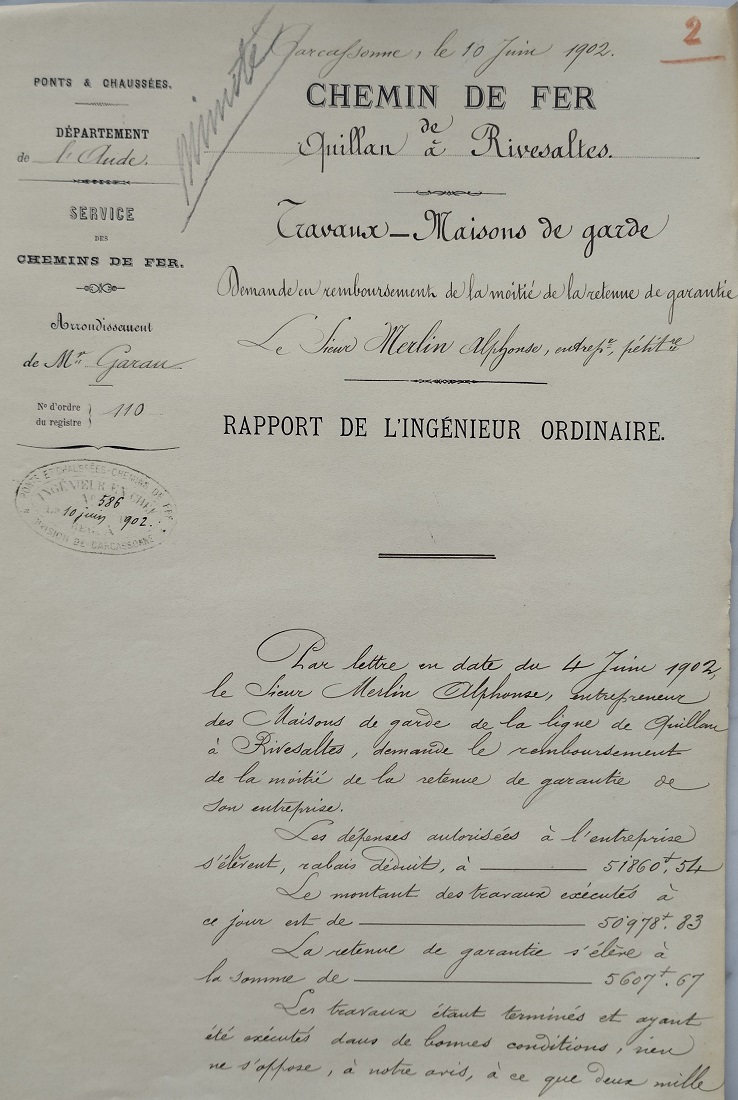 2
minute
Carcassonne, le 10 Juin 1902.
PONTS & CHAUSSÉES.
DÉPARTEMENT
de l'Aude.
SERVICE
DES
CHEMINS DE FER.
Arrondissement
de Mr. Garau
N° d'ordre
du registre } 110
PONTS ET CHAUSSÉES-CHEMINS DE FER
INGÉNIEUR EN CHEF
586
Le 10 juin 1902.
DIVISION DE CARCASSONNE
CHEMIN DE FER
de
Quillan à Rivesaltes.
Travaux - Maisons de garde
Demande en remboursement de la moitié de la retenue de garantie
Le Sieur Merlin Alphonse, entrepr, pétitre
RAPPORT DE L'INGÉNIEUR ORDINAIRE.
Par lettre en date du 4 Juin 1902,
le Sieur Merlin Alphonse, entrepreneur
des Maisons de garde de la ligne de Quillan
à Rivesaltes, demande le remboursement
de la moitié de la retenue de garantie de
son entreprise.
Les dépenses autorisées à l'entreprise
s'élèvent, rabais déduit, à — 51860f.54
Le montant des travaux exécutés à
ce jour est de — 50978f.83
La retenue de garantie s'élève à
la somme de — 5607f.67
Les travaux étant terminés et ayant
été exécutés dans de bonnes conditions, rien
ne s'oppose, à notre avis, à ce que deux mille